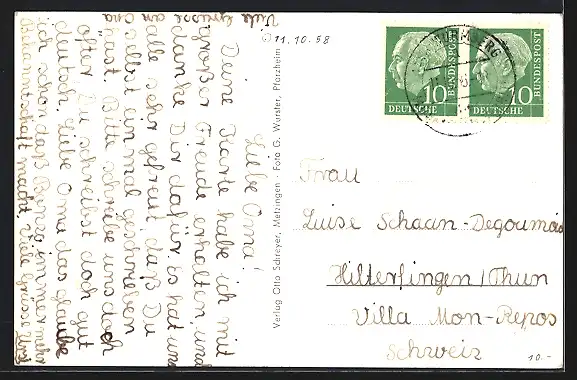 Liebe Oma!
Deine Karte habe ich mit
großer Freude erhalten, und
danke Dir dafür. Es hat uns
alle sehr gefreut, daß Du
selbst einmal geschrieben
hast. Bitte schreibe uns doch
öfter. Du schreibst doch gut
deutsch, liebe Oma das glaube
ich schon daß immer mehr
Bekanntschaft macht. Viele Grüsse
Viele Grüsse an
11.10.58
Verlag Otto Schreyer, Metzingen · Foto G. Wurster, Pforzheim
DEUTSCHE BUNDESPOST
10
DEUTSCHE BUNDESPOST
10
Frau
Luise Schaan-Degoumois
Hilterfingen/Thun
Villa Mon-Repos
Schweiz
10.-